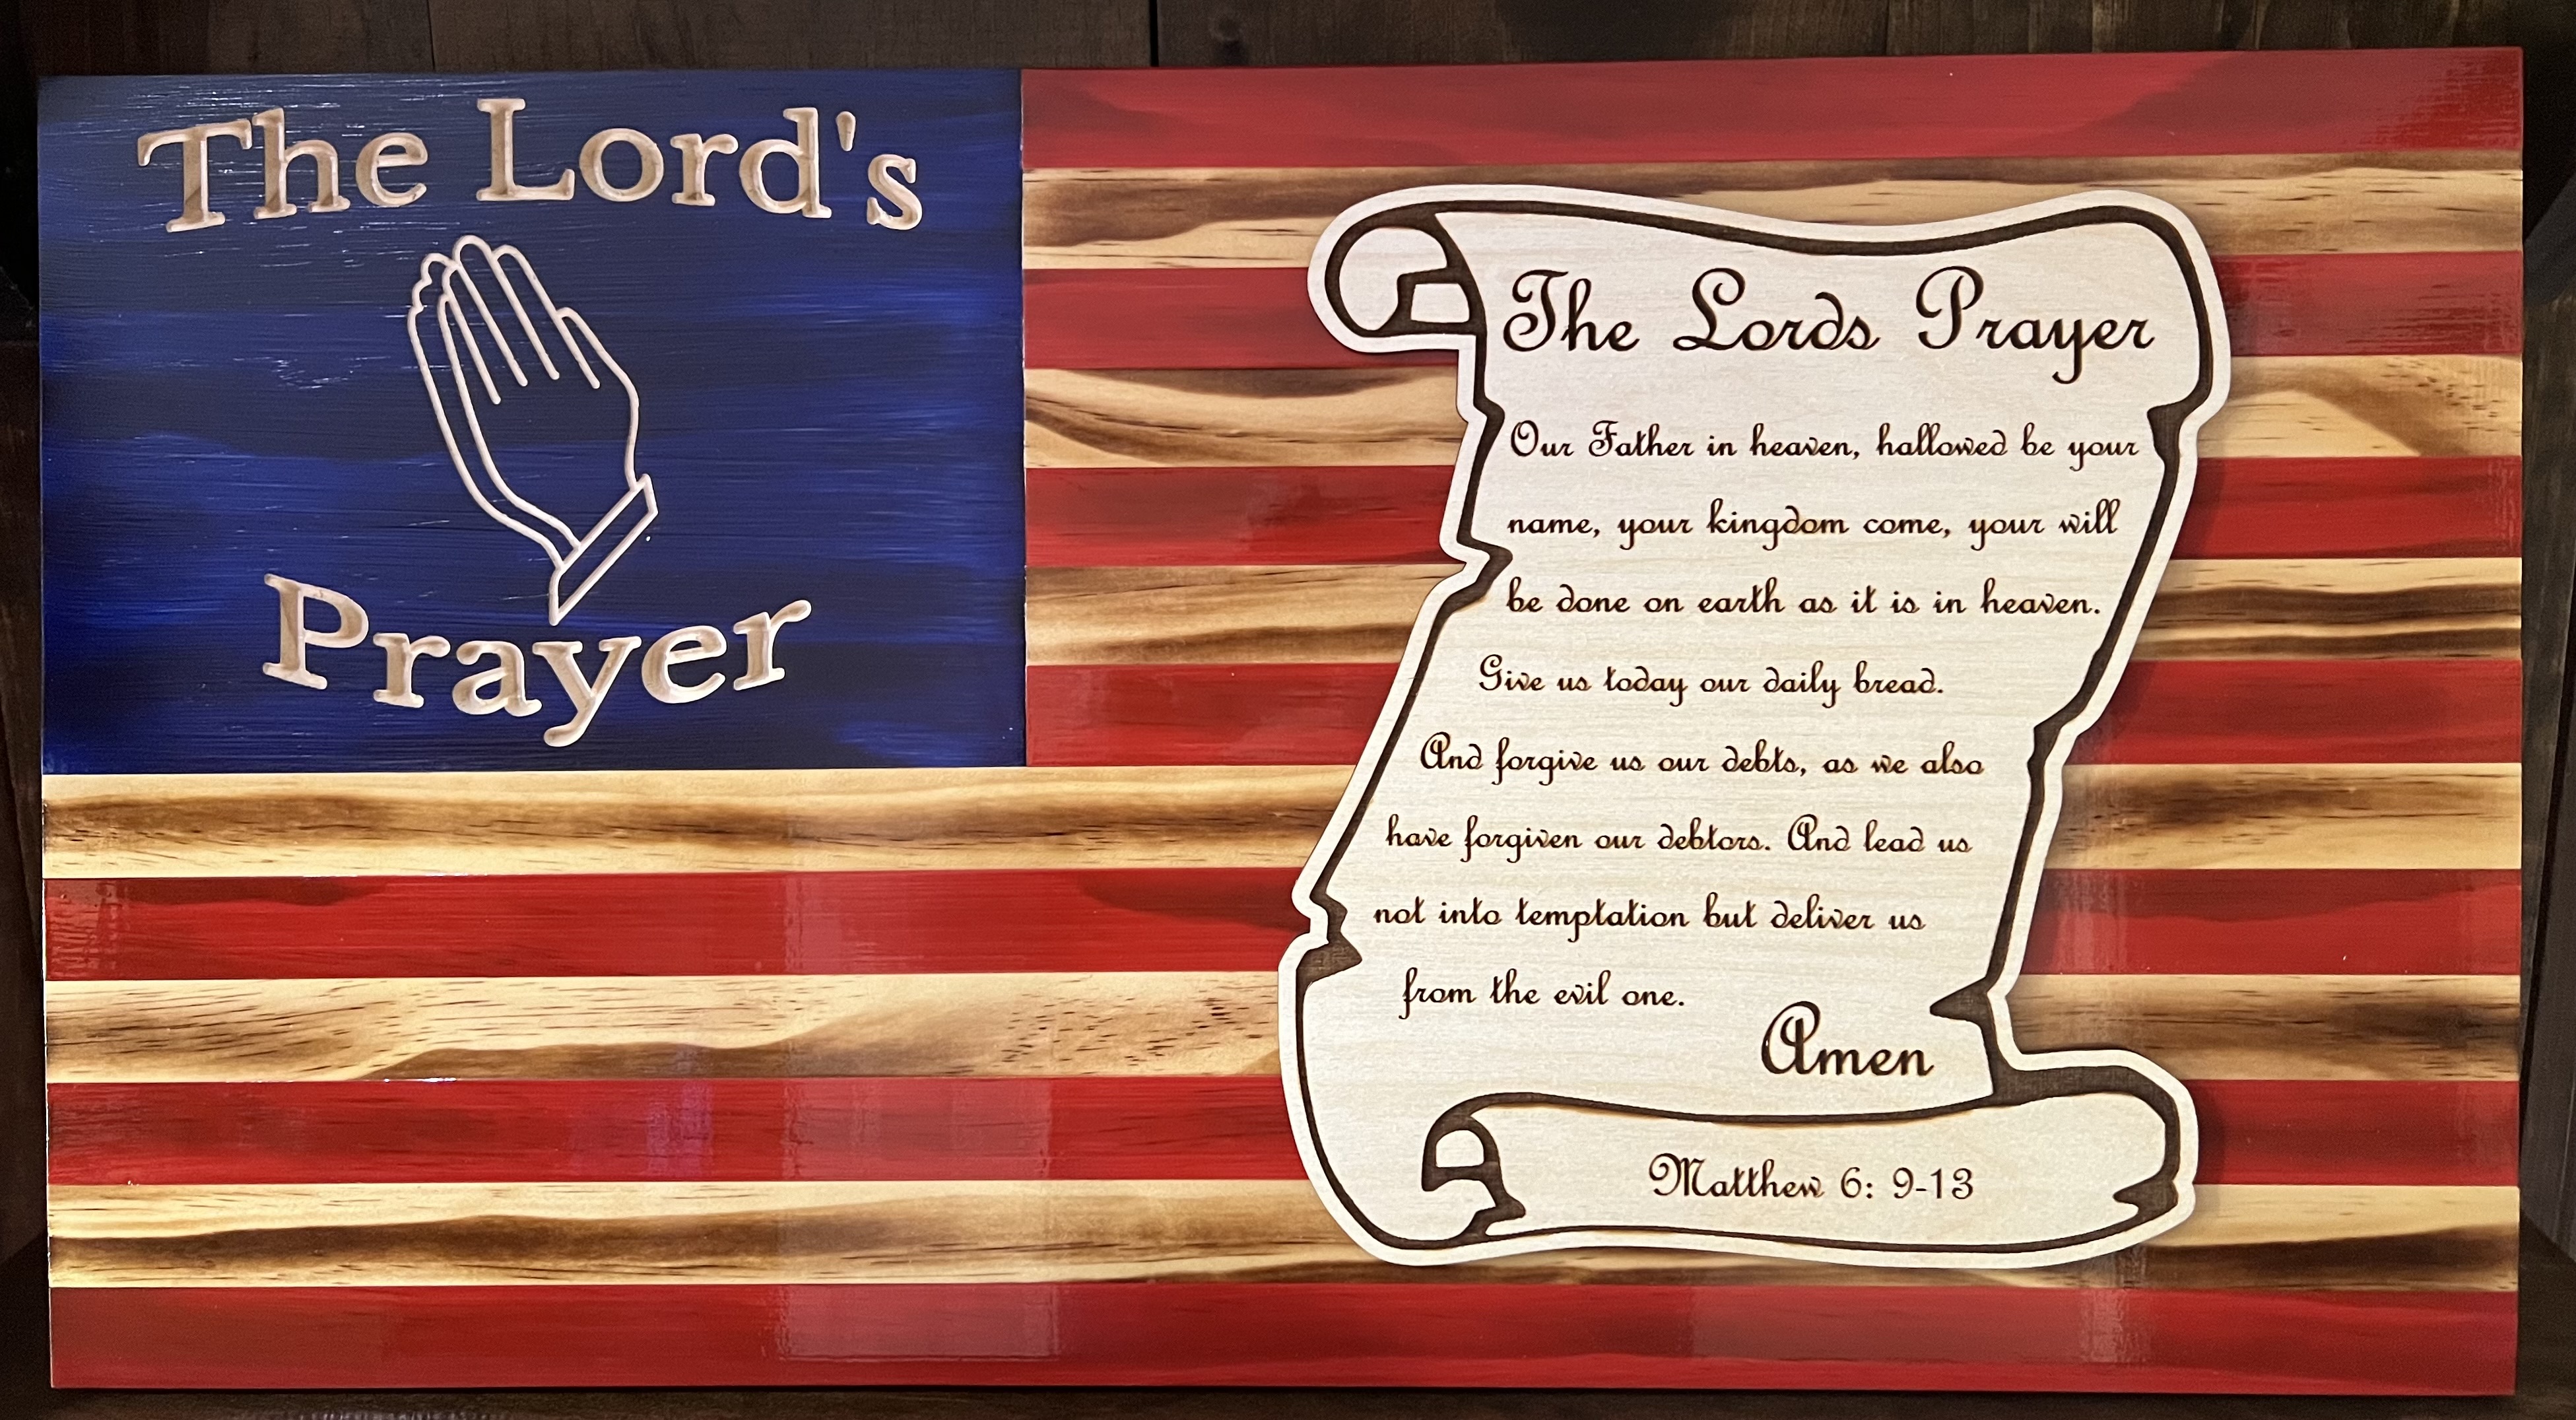 The Lord's
Prayer
The Lords Prayer
Our Father in heaven, hallowed be your
name, your kingdom come, your will
be done on earth as it is in heaven.
Give us today our daily bread.
And forgive us our debts, as we also
have forgiven our debtors. And lead us
not into temptation but deliver us
from the evil one.
Amen
Matthew 6: 9-13